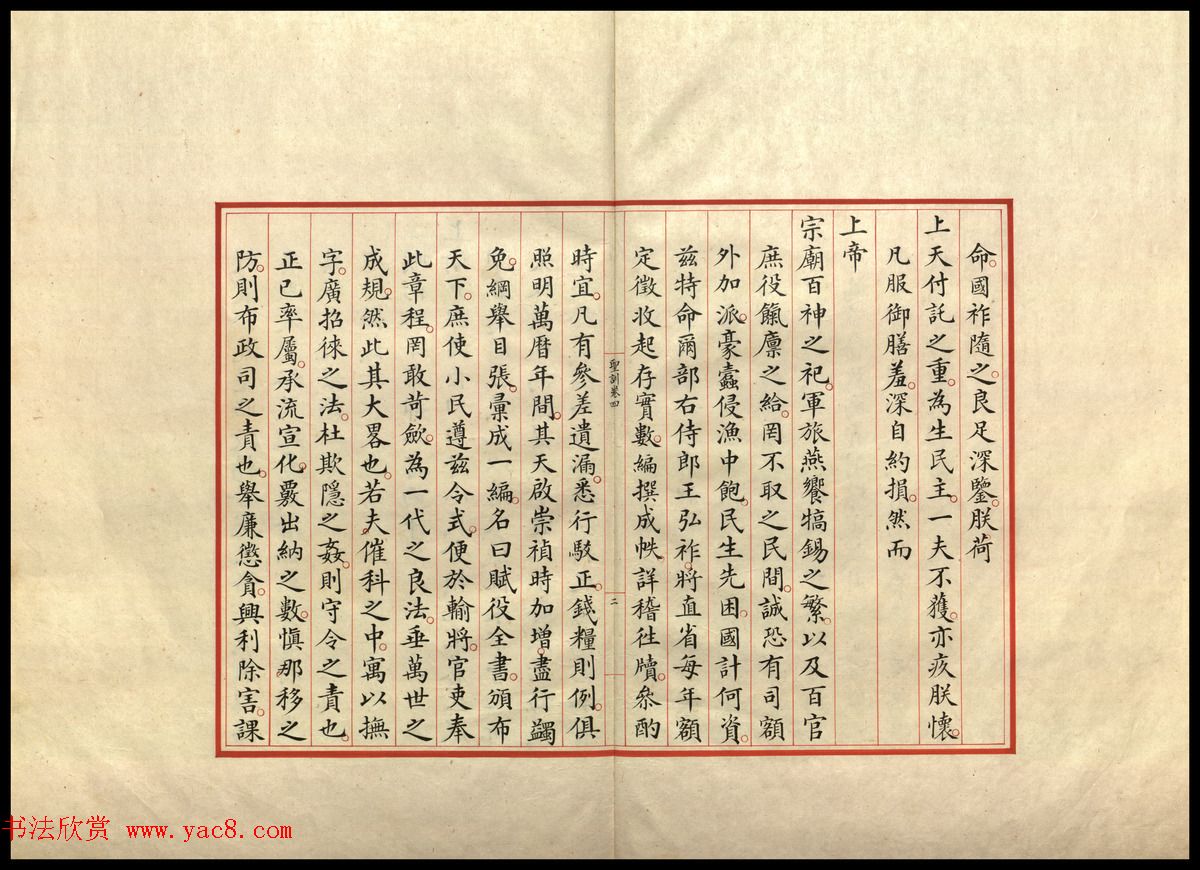 命。國祚隨之。良足深鑒。朕荷
上天付託之重。為生民主。一夫不獲。亦疚朕懷。
凡服御膳羞。深自約損。然而
上帝
宗廟百神之祀。軍旅燕饗犒錫之繁。以及百官
庶役餼廩之給。罔不取之民間。誠恐有司額
外加派。豪蠹侵漁中飽。民生先困。國計何資。
茲特命爾部右侍郎王弘祚。將直省每年額
定徵收起存實數。編撰成帙。詳稽往牘。叅酌
聖訓卷四
二
時宜。凡有參差遺漏。悉行駁正。錢糧則例。俱
照明萬曆年間。其天啟崇禎時加增。盡行蠲
免。綱舉目張。彙成一編。名曰賦役全書。頒布
天下。庶使小民遵茲令式。便於輸將。官吏奉
此章程。罔敢苛斂。為一代之良法。垂萬世之
成規。然此其大畧也。若夫催科之中。寓以撫
字。廣招徠之法。杜欺隱之姦。則守令之責也。
正己率屬。承流宣化。覈出納之數。慎那移之
防。則布政司之責也。舉廉懲貪。興利除害。課
书法欣赏 www.yac8.com